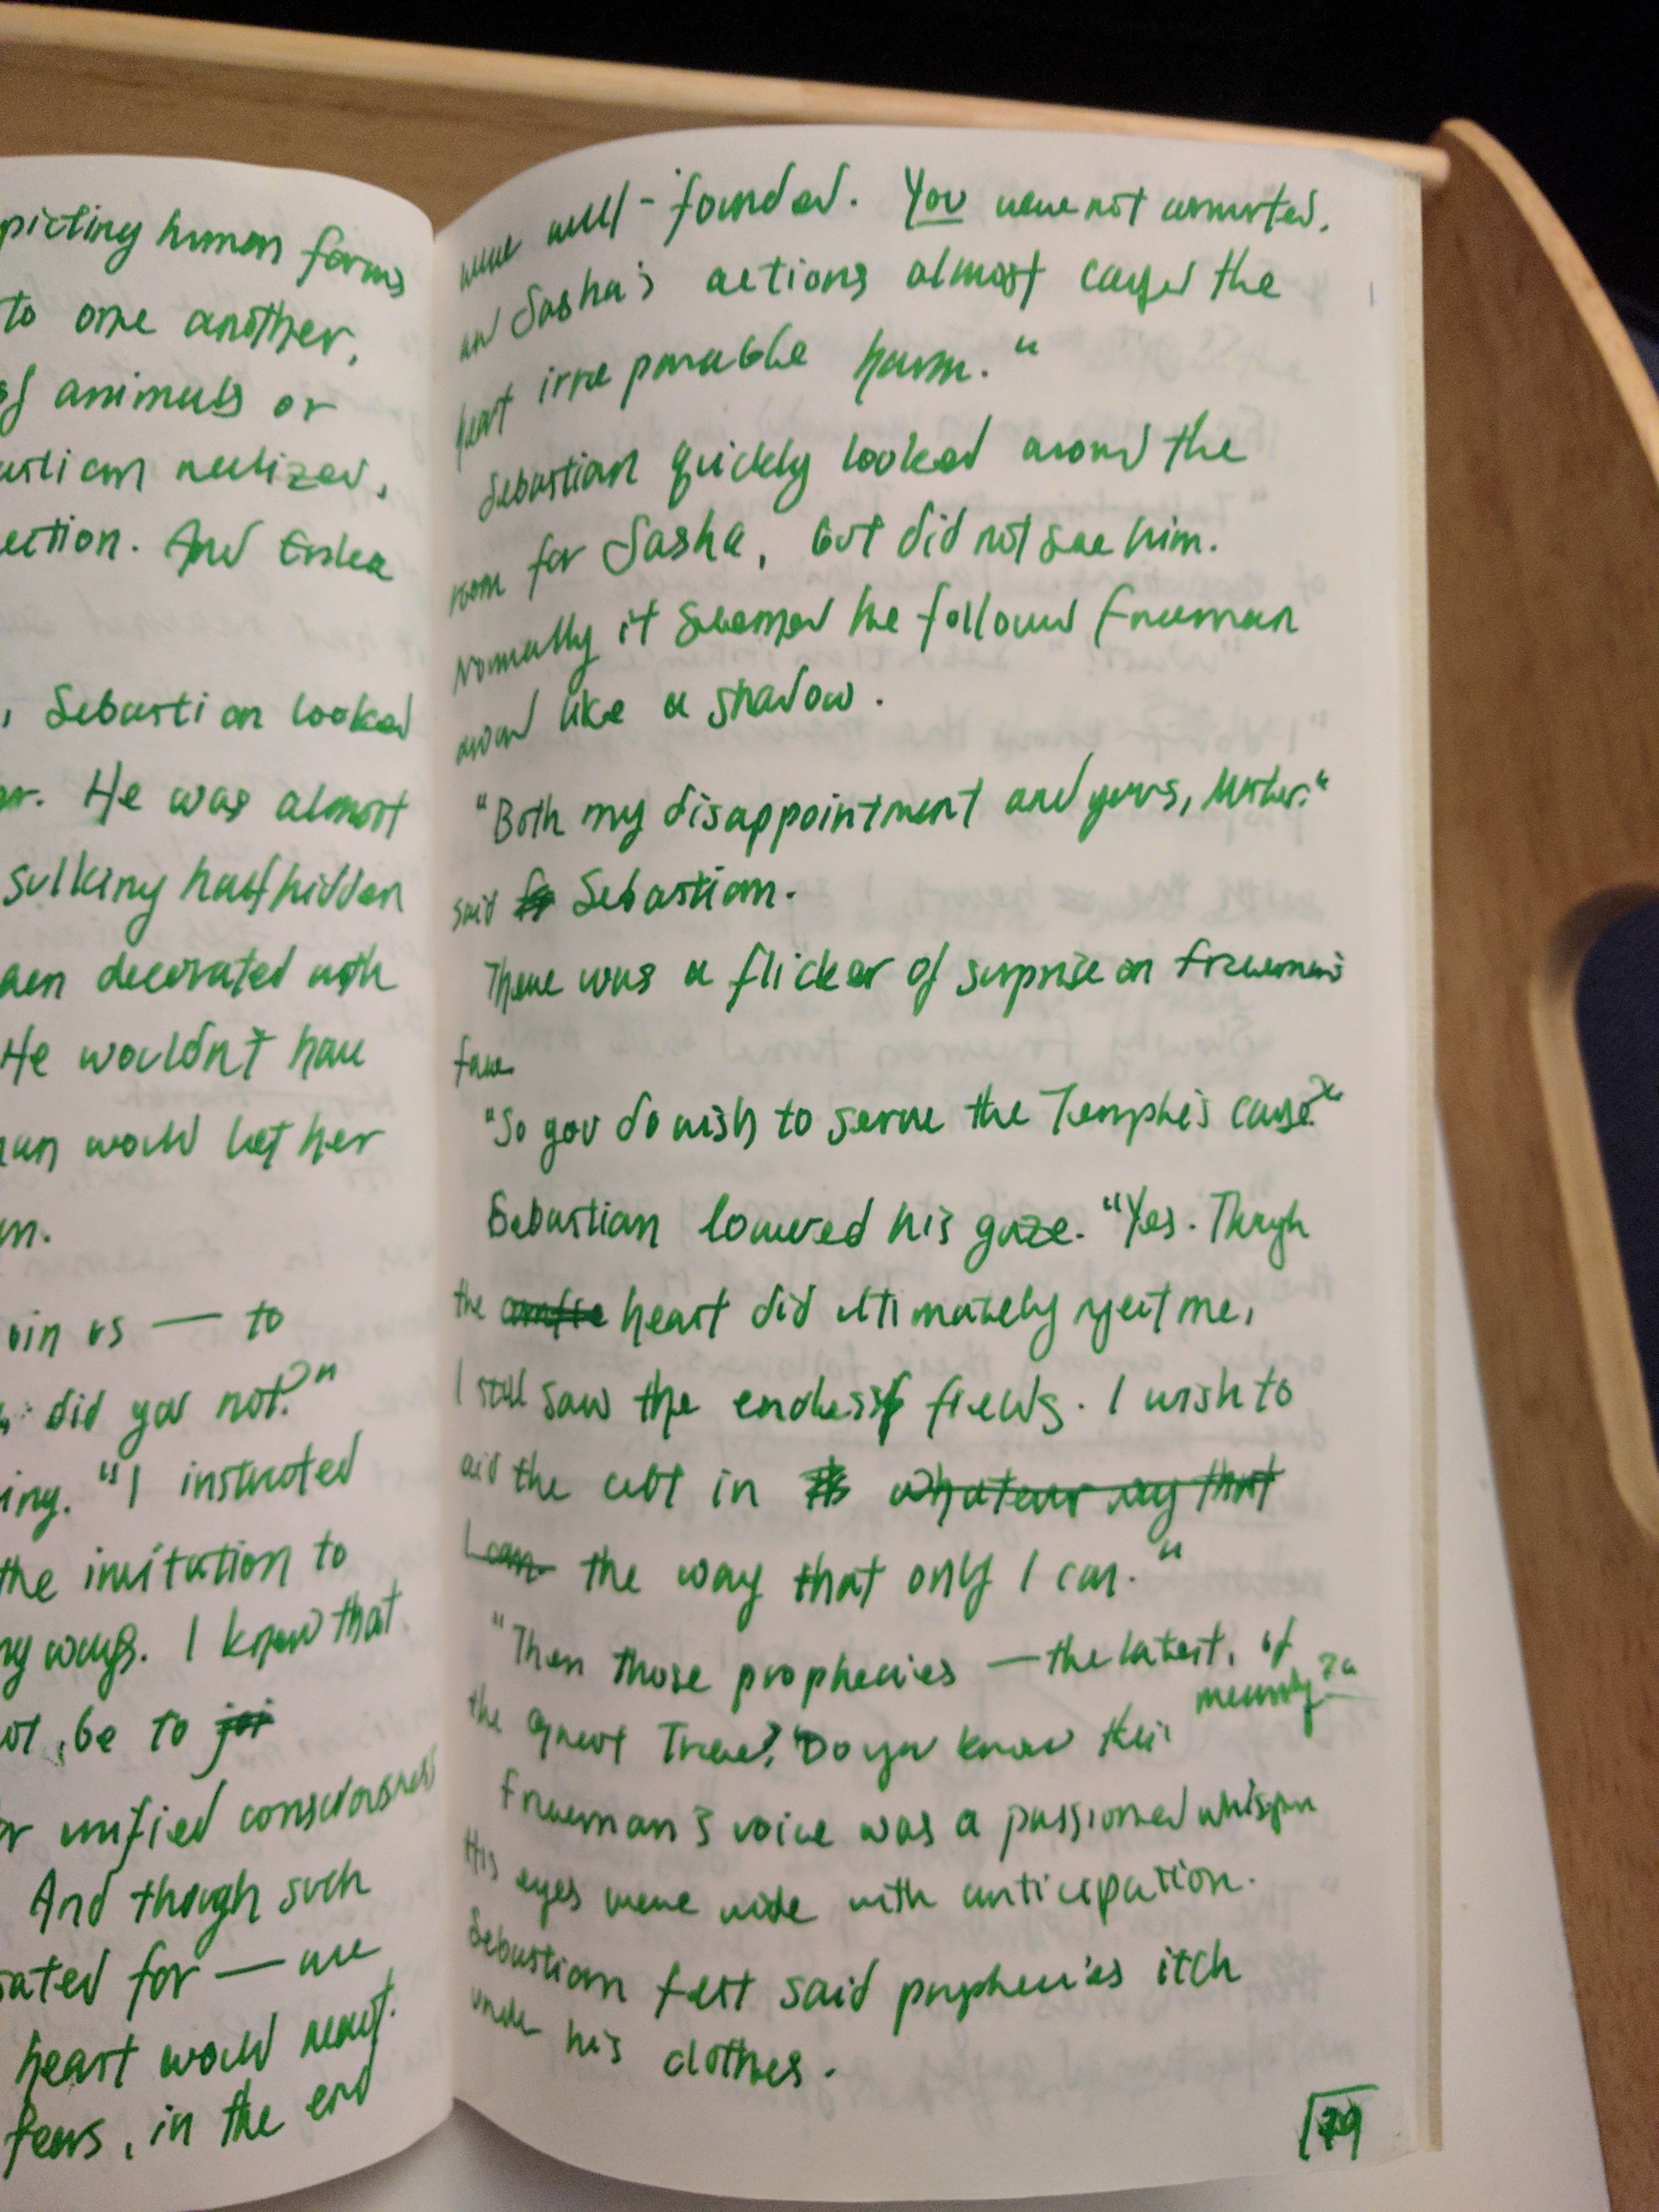 picting human forms
to one another,
of animals or
realized,
ection. And
, Sebastian looked
He was almost
sulking half hidden
decorated with
He wouldn't have
would let her
oin us — to
did you not?"
ing. "I instructed
the invitation to
ways. I know that
be to
or unified consciousness
And though such
ated for — we
heart would react.
fears, in the end
were well-founded. You were not committed,
and Sasha's actions almost caused the
heart irreparable harm."
Sebastian quickly looked around the
room for Sasha, but did not see him.
Normally it seemed he followed Freeman
around like a shadow.
"Both my disappointment and yours, Mister."
said Sebastian.
There was a flicker of surprise on Freeman's
face.
"So you do wish to serve the Temple's cause?"
Sebastian lowered his gaze. "Yes. Though
the heart did ultimately reject me,
I still saw the endless fields. I wish to
aid the cult in its whatever way that
I can the way that only I can."
"Then those prophecies — the latest, of
the Great Tree? Do you know their meaning?"
Freeman's voice was a passioned whisper
His eyes were wide with anticipation.
Sebastian felt said prophecies itch
under his clothes.
79